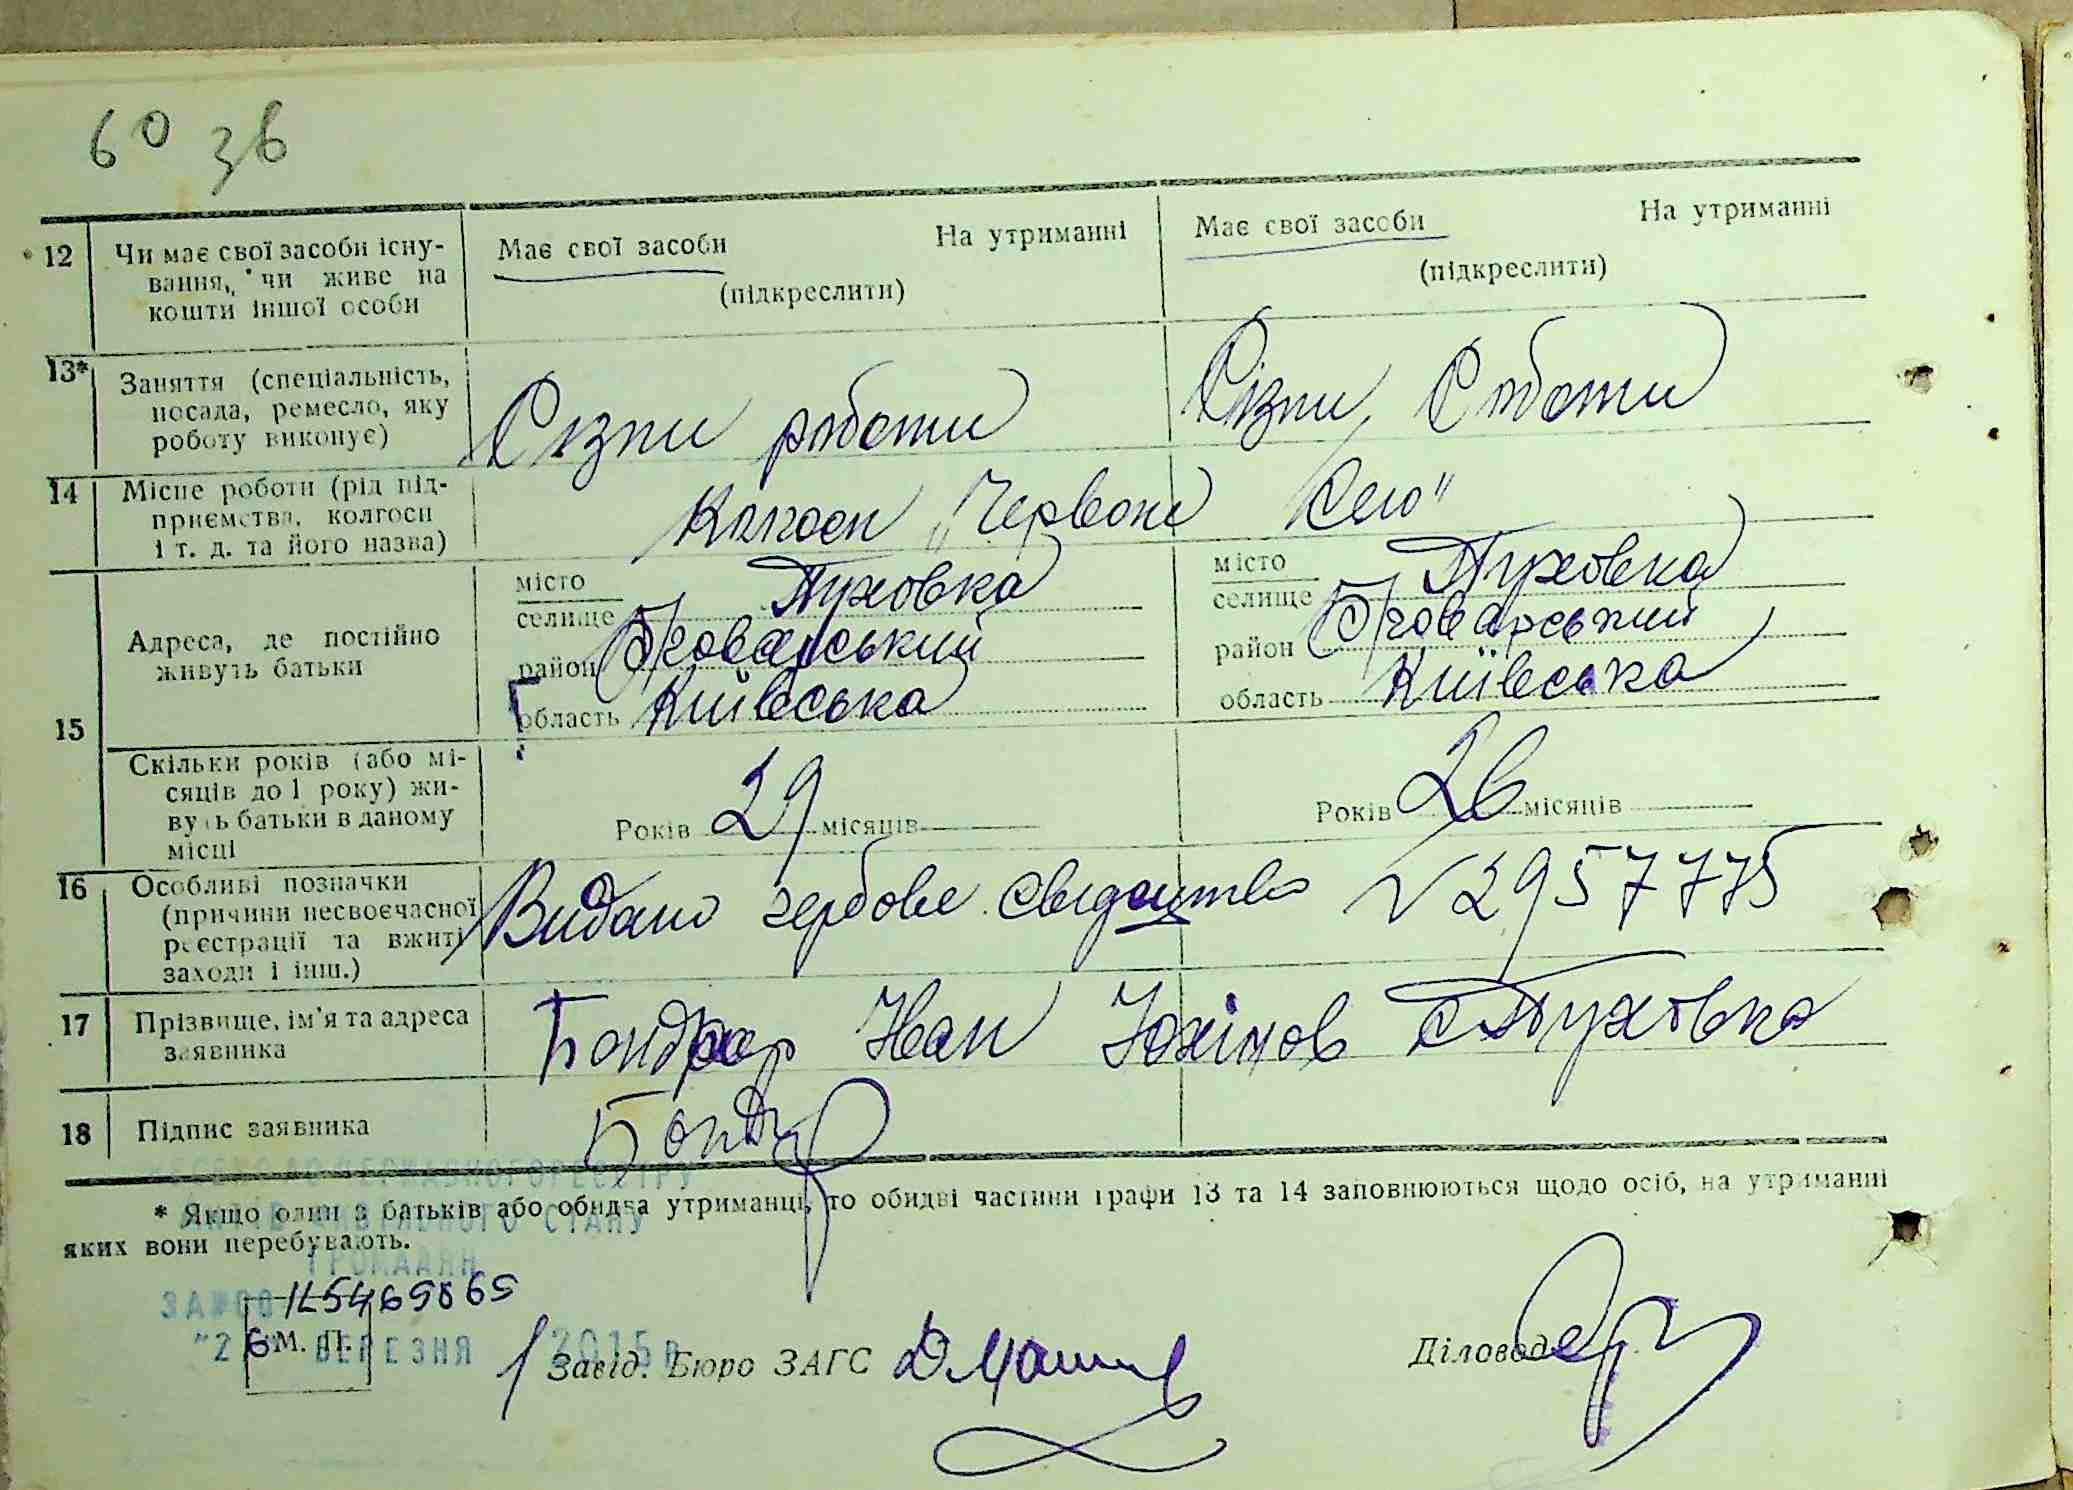 60 зв
12 Чи має свої засоби існу- Має свої засоби На утриманні Має свої засоби На утриманні
вання, чи живе на (підкреслити) (підкреслити)
кошти іншої особи
13* Заняття (спеціальність,
посада, ремесло, яку
роботу виконує) Різни роботи Різни Роботи
14 Місце роботи (рід під-
приємства, колгосп Колгосп „Червоне Село"
і т. д. та його назва)
15 Адреса, де постійно
живуть батьки
місто
селище Пуховка
район Броварський
область Київська
місто
селище Пуховка
район Броварський
область Київська
Скільки років (або мі-
сяців до 1 року) жи-
вуть батьки в даному
місці
Років 29 місяців Років 26 місяців
16 Особливі позначки
(причини несвоєчасної
реєстрації та вжиті
заходи і інш.)
Видано гербове свидоцтво № 2957775
17 Прізвище, ім'я та адреса
заявника
Бондар Иван Юхімов с Пуховка
18 Підпис заявника Бондар
ДЕРЖАВНОГО РЕЄСТРУ
АКТІВ ЦИВІЛЬНОГО СТАНУ
ГРОМАДЯН
* Якщо один з батьків або обидва утриманці, то обидві частини графи 13 та 14 заповнюються щодо осіб, на утриманні
яких вони перебувають.
"26" БЕРЕЗНЯ 2015р
М. П.
Завід. Бюро ЗАГС
Діловод